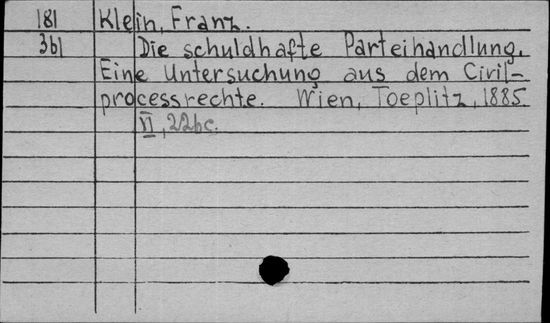 181 Klein, Franz.
361 Die schuldhafte Parteihandlung.
Eine Untersuchung aus dem Civil-
processrechte. Wien, Toeplitz, 1885
VI, 226c.